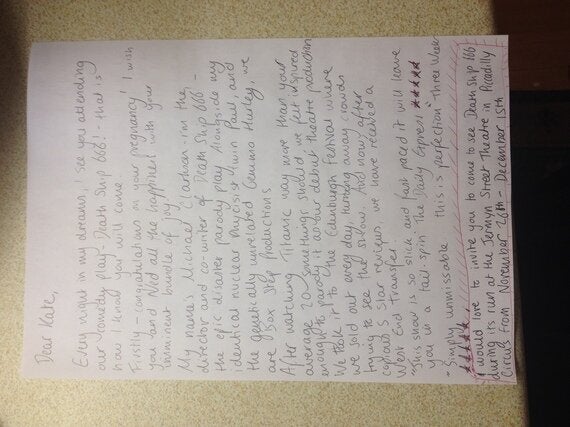 Dear Kate,
Every night in my dreams, I see you attending
our comedy play - Death Ship 666! - that is
how I know you will come.
Firstly - congratulations on your pregnancy! I wish
you and Ned all the happiness with your
imminent bundle of joy.
My name's Michael Clarkson - im the
director and co-writer of Death Ship 666 -
the epic disaster parody play. Alongside my
identical nuclear physicist twin Paul, and
the genetically unrelated Gemma Hurley, we
are Box Step Productions.
After watching Titanic way more than your
average 20 somethings should we felt inspired
enough to parody it as our debut theatre production
We took it to the Edinburgh Festival where
we sold out every day, turning away crowds
trying to see the show. And now, after
5 star reviews, we have received a
West End Transfer.
"This show is so slick and fast paced it will leave
you in a tail spin" The Daily Express ★★★★★
"Simply unmissable this is perfection" Three Weeks
★★★★★
I would love to invite you to come to see Death Ship 666
during its run at the Jermyn Street Theatre in Picadilly
Circus from November 26th - December 15th